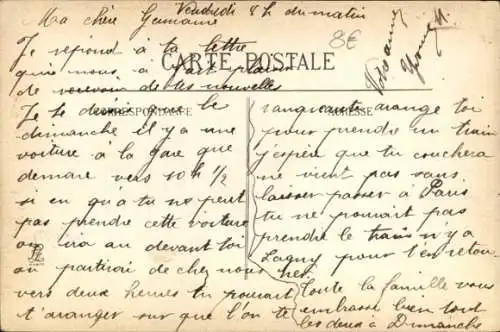 Vendredi 8 h du matin
Ma chère Germaine
Je répond à ta lettre
qui nous a fait plaisir
CARTE POSTALE
8€
de recevoir de tes nouvelles
CORRESPONDANCE
ADRESSE
Je te que le
demanche Il y a une
voiture à la gare que
demare vers 10 h 1/2
si en qu'a tu ne peut
pas prendre cette voiture
on ira au devant toi
on partirai de chez nous
vers deux heures tu pourait
t'aranger sur que l'on te
arange toi
pour prendre un train
j'espère que tu couchera
ne vient pas sans
laisser passer à Paris
tu ne pourait pas
prendre le train n'y a
Lagny pour l'en retour
Toute la famille vous
embrasse bien tout
les deux à Dimanche